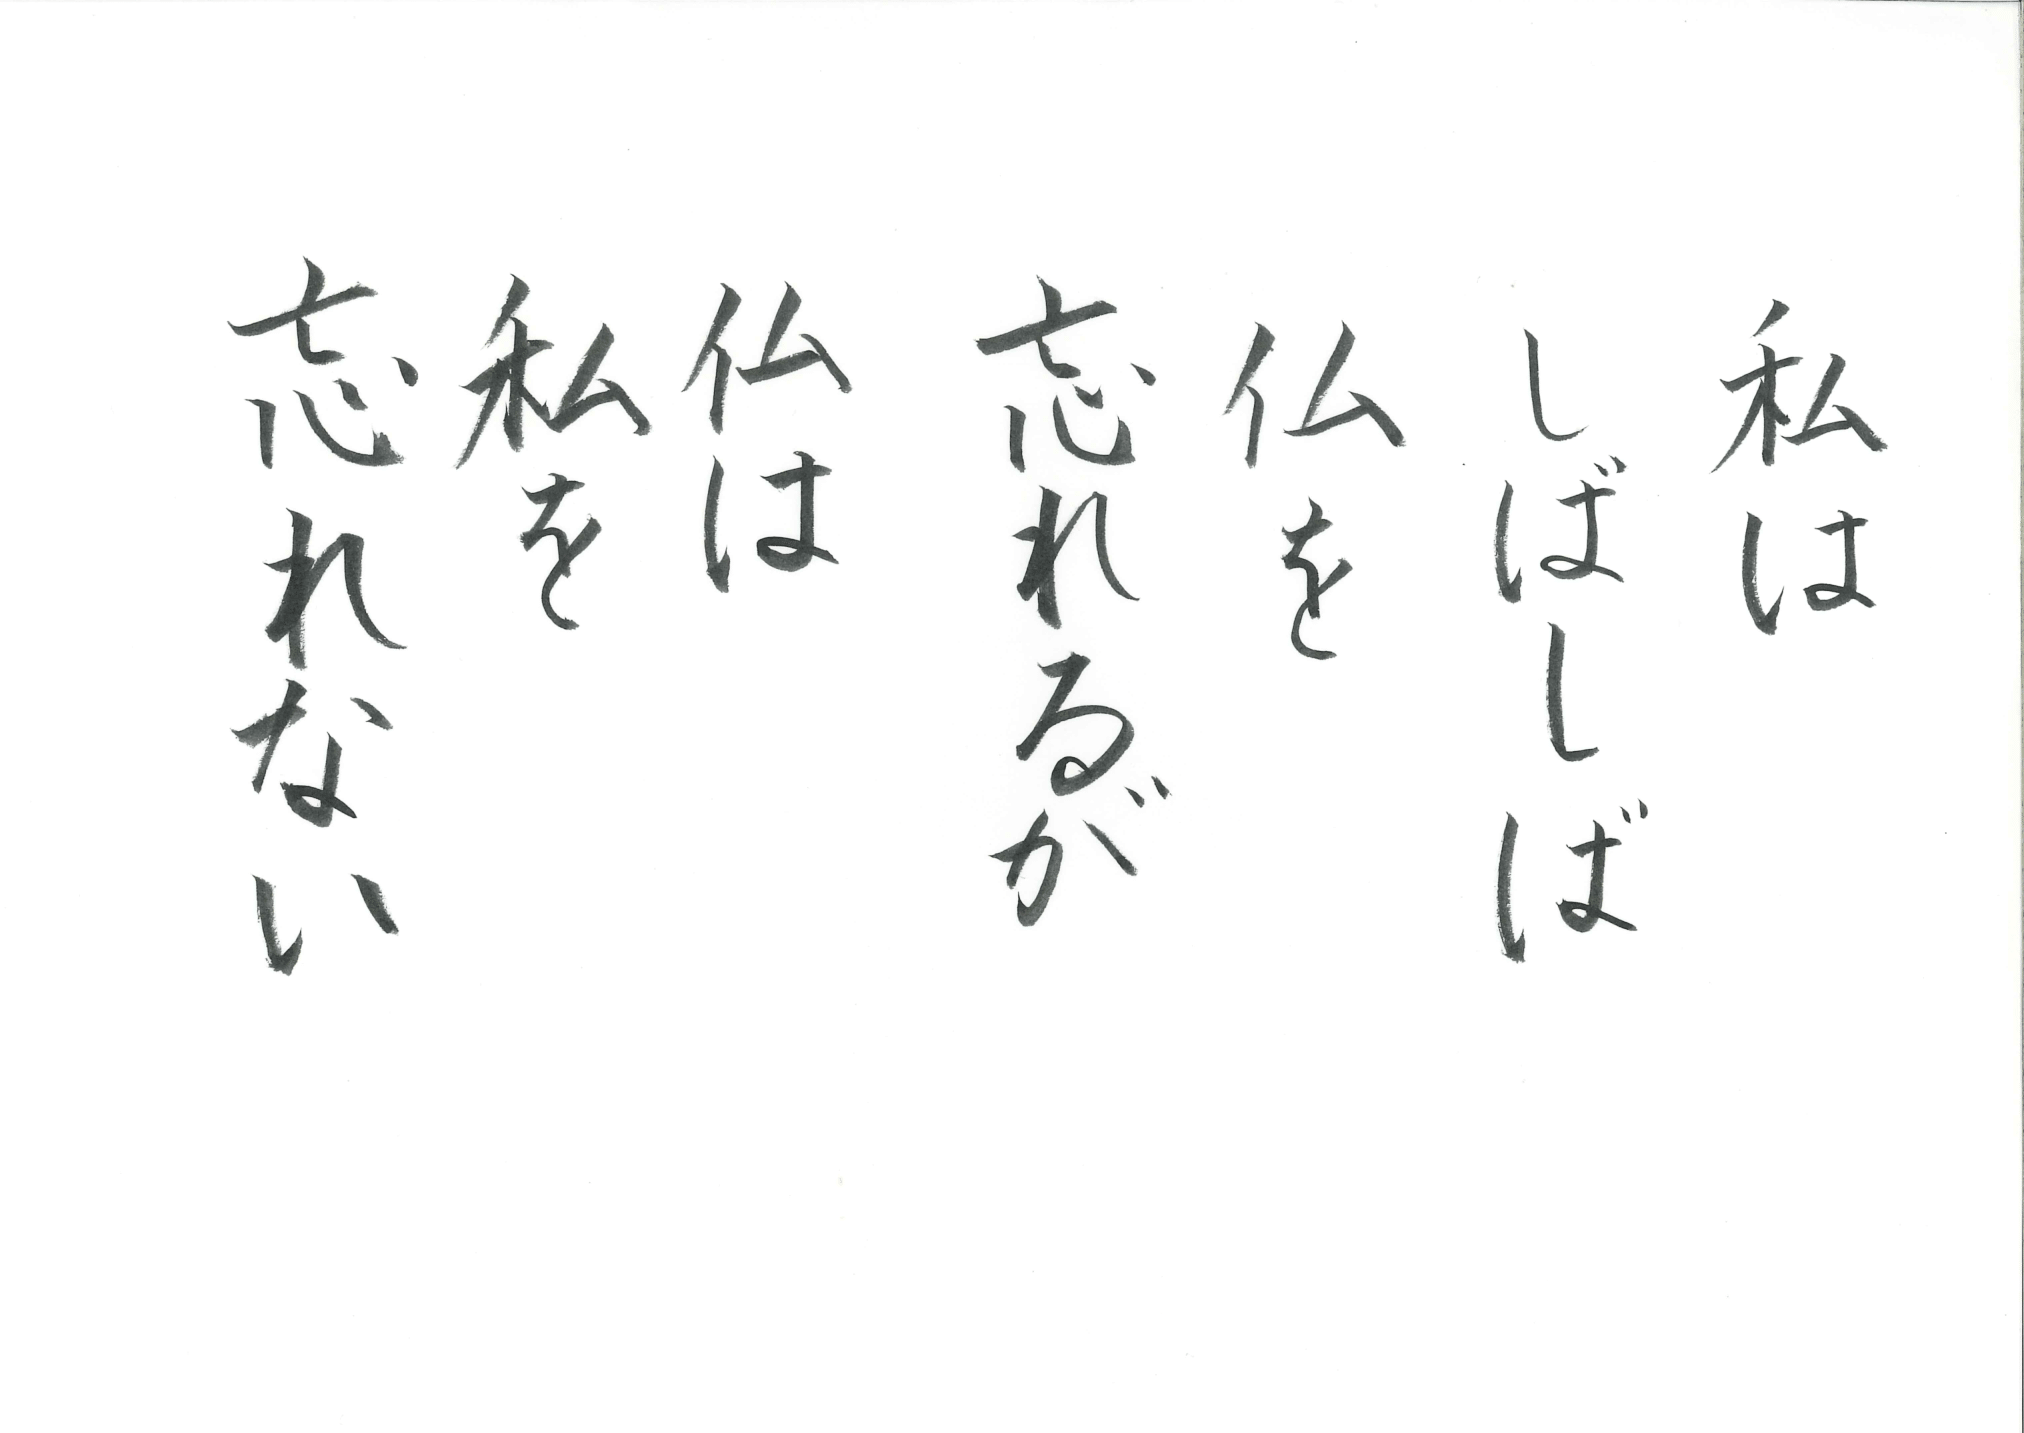 私は
しばしば
仏を
忘れるが
仏は
私を
忘れない